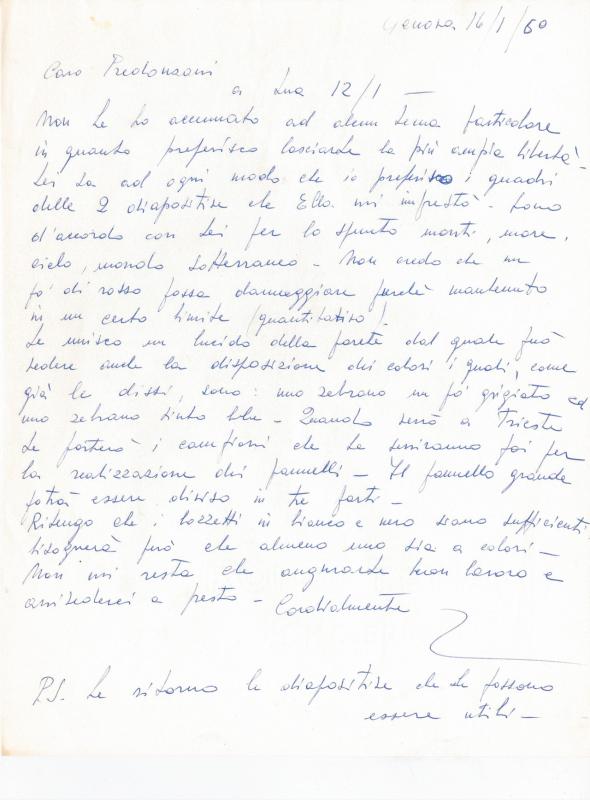 Genova 16/1/60
Caro Predonzani
a Sua 12/1 —
Non Le ho accennato ad alcun tema particolare
in quanto preferisco lasciarLe la più ampia libertà -
Lei sa ad ogni modo che io preferisco i quadri
delle 2 diapositive che Ella mi imprestò - Sono
d'accordo con Lei per lo spunto monti, mare,
cielo, mondo sotterraneo - Non credo che un
po' di rosso possa danneggiare purchè mantenuto
in un certo limite (quantitativo)
Le unisco un lucido della parete dal quale può
vedere anche la disposizione dei colori i quali, come
già le dissi, sono: uno zebrano un po' grigiato ed
uno zebrano tinto blu - Quando verrò a Trieste
Le porterò i campioni che Le serviranno poi per
la realizzazione dei pannelli - Il pannello grande
potrà essere diviso in tre parti -
Ritengo che i bozzetti in bianco e nero siano sufficienti
bisognerà però che almeno uno sia a colori -
Non mi resta che augurarLe buon lavoro e
arrivederci a presto - Cordialmente
P.S. Le ritorno le diapositive che Le possono
essere utili -